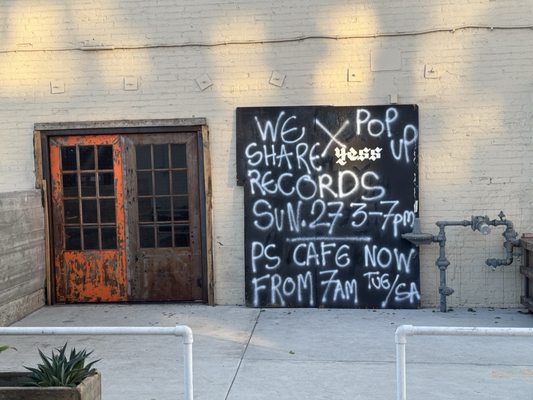 WE X POP
SHARE yess UP
RECORDS
SUN. 27 3-7pm
PS CAFE NOW
FROM 7AM TUE/SA